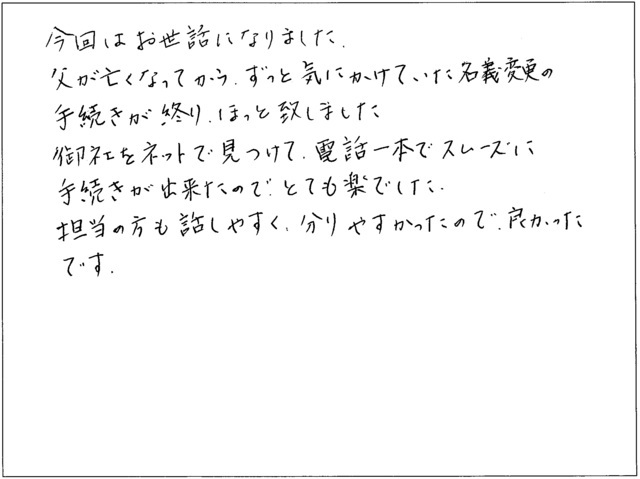 今回はお世話になりました.
父が亡くなってから.ずっと気にかけていた名義変更の
手続きが終り.ほっと致しました
御社をネットで見つけて.電話一本でスムーズに
手続きが出来たので.とても楽でした.
担当の方も話しやすく.分りやすかったので.良かった
です.